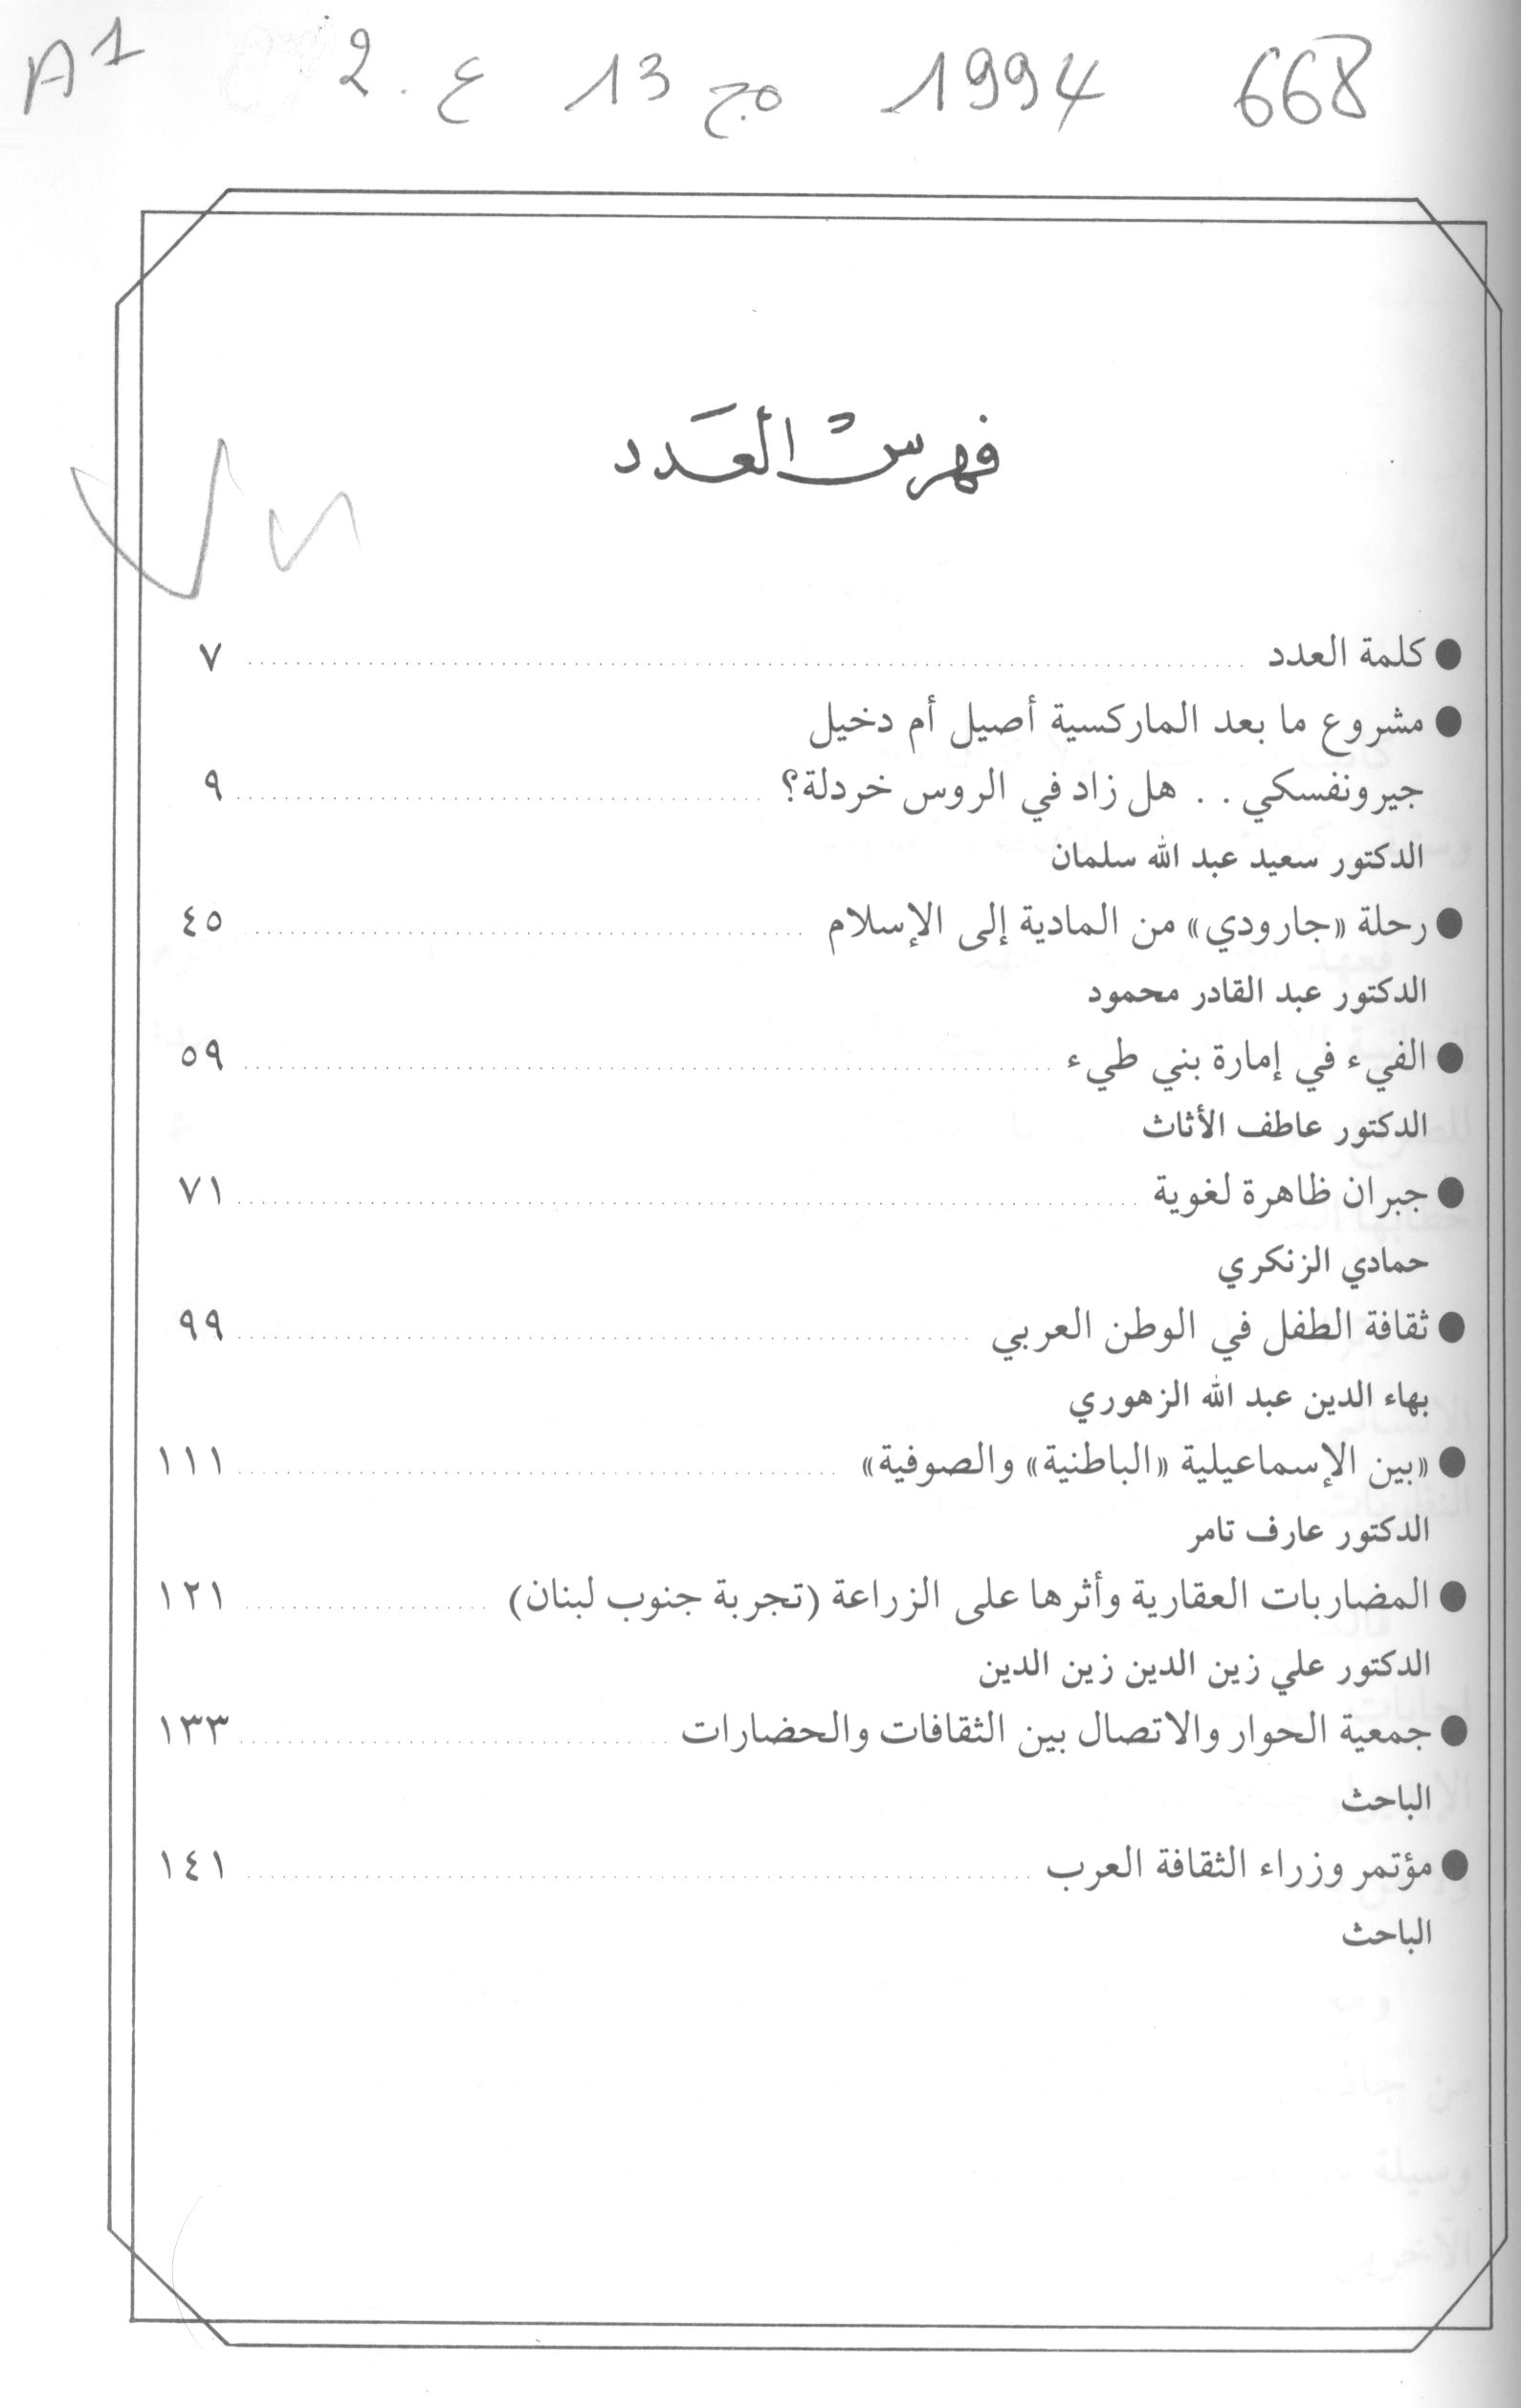 668 1994 مج 13 ع. 2 A1
فهرسْت العَدد
● كلمة العدد ........ ٧
● مشروع ما بعد الماركسية أصيل أم دخيل
جيرونفسكي . . هل زاد في الروس خردلة؟ ........ ٩
الدكتور سعيد عبد الله سلمان
● رحلة «جارودي» من المادية إلى الإسلام ........ ٤٥
الدكتور عبد القادر محمود
● الفيء في إمارة بني طيء ........ ٥٩
الدكتور عاطف الأثاث
● جبران ظاهرة لغوية ........ ٧١
حمادي الزنكري
● ثقافة الطفل في الوطن العربي ........ ٩٩
بهاء الدين عبد الله الزهوري
● «بين الإسماعيلية «الباطنية» والصوفية» ........ ١١١
الدكتور عارف تامر
● المضاربات العقارية وأثرها على الزراعة (تجربة جنوب لبنان) ........ ١٢١
الدكتور علي زين الدين زين الدين
● جمعية الحوار والاتصال بين الثقافات والحضارات ........ ١٣٣
الباحث
● مؤتمر وزراء الثقافة العرب ........ ١٤١
الباحث